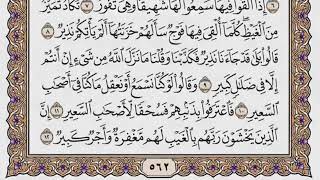 إِذَآ أُلْقُوا۟ فِيهَا سَمِعُوا۟ لَهَا شَهِيقًا وَهِىَ تَفُورُ ٧ تَكَادُ تَمَيَّزُ
مِنَ ٱلْغَيْظِ كُلَّمَآ أُلْقِىَ فِيهَا فَوْجٌ سَأَلَهُمْ خَزَنَتُهَآ أَلَمْ يَأْتِكُمْ نَذِيرٌ ٨
قَالُوا۟ بَلَىٰ قَدْ جَآءَنَا نَذِيرٌ فَكَذَّبْنَا وَقُلْنَا مَا نَزَّلَ ٱللَّهُ مِن شَىْءٍ إِنْ أَنتُمْ
إِلَّا فِى ضَلَـٰلٍ كَبِيرٍ ٩ وَقَالُوا۟ لَوْ كُنَّا نَسْمَعُ أَوْ نَعْقِلُ مَا كُنَّا فِىٓ أَصْحَـٰبِ
ٱلسَّعِيرِ ١٠ فَٱعْتَرَفُوا۟ بِذَنۢبِهِمْ فَسُحْقًا لِّأَصْحَـٰبِ ٱلسَّعِيرِ ١١ إِنَّ
ٱلَّذِينَ يَخْشَوْنَ رَبَّهُم بِٱلْغَيْبِ لَهُم مَّغْفِرَةٌ وَأَجْرٌ كَبِيرٌ ١٢
٥٦٢